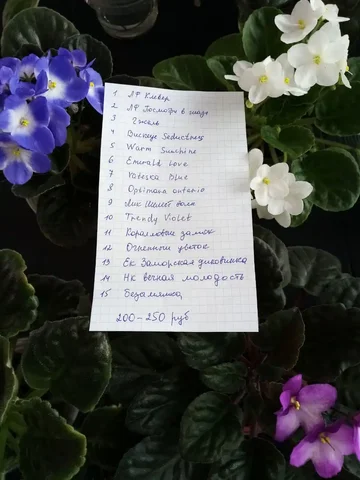 1 ЛФ Клевер
2 ЛФ Посмотри в глаза
3 Гжель
4 Buckeye Seductress
5 Warm Sunshine
6 Emerald Love
7 Blue
8 Optimara ontario
9 волн
10 Trendy Violet
11 Коралловый замок
12 Огненный цветок
13 Ек Заморская диковинка
14 Нк вечная молодость
15 Безымянка
200-250 руб